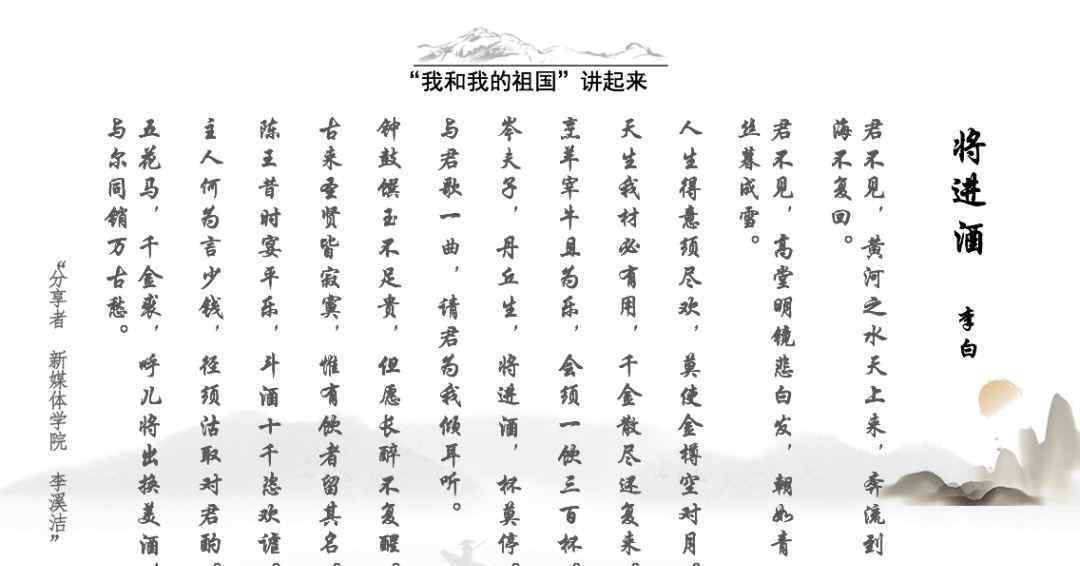 “我和我的祖国”讲起来
将进酒
李白
君不见，黄河之水天上来，奔流到
海不复回。
君不见，高堂明镜悲白发，朝如青
丝暮成雪。
人生得意须尽欢，莫使金樽空对月。
天生我材必有用，千金散尽还复来。
烹羊宰牛且为乐，会须一饮三百杯。
岑夫子，丹丘生，将进酒，杯莫停。
与君歌一曲，请君为我倾耳听。
钟鼓馔玉不足贵，但愿长醉不复醒。
古来圣贤皆寂寞，惟有饮者留其名。
陈王昔时宴平乐，斗酒十千恣欢谑。
主人何为言少钱，径须沽取对君酌。
五花马，千金裘，呼儿将出换美酒，
与尔同销万古愁。
“分享者 新媒体学院 李溪洁”